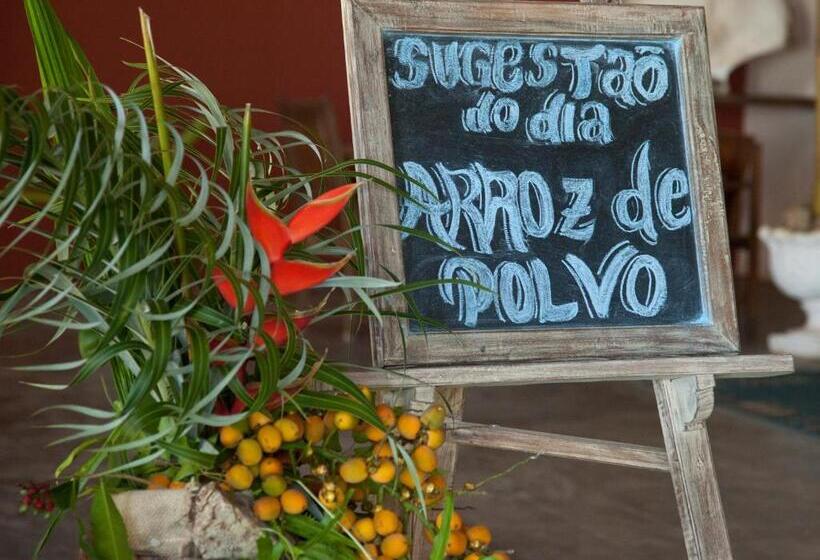 SUGESTÃO
do dia
ARROZ de
POLVO